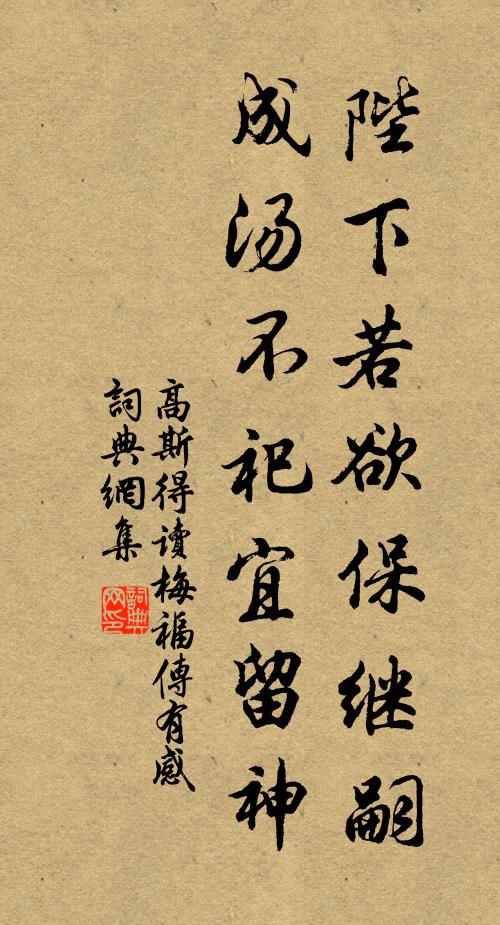 陛下若欲保继嗣
成汤不祀宜留神
高斯得讀梅福傳有感
詞典網集
詞典网印